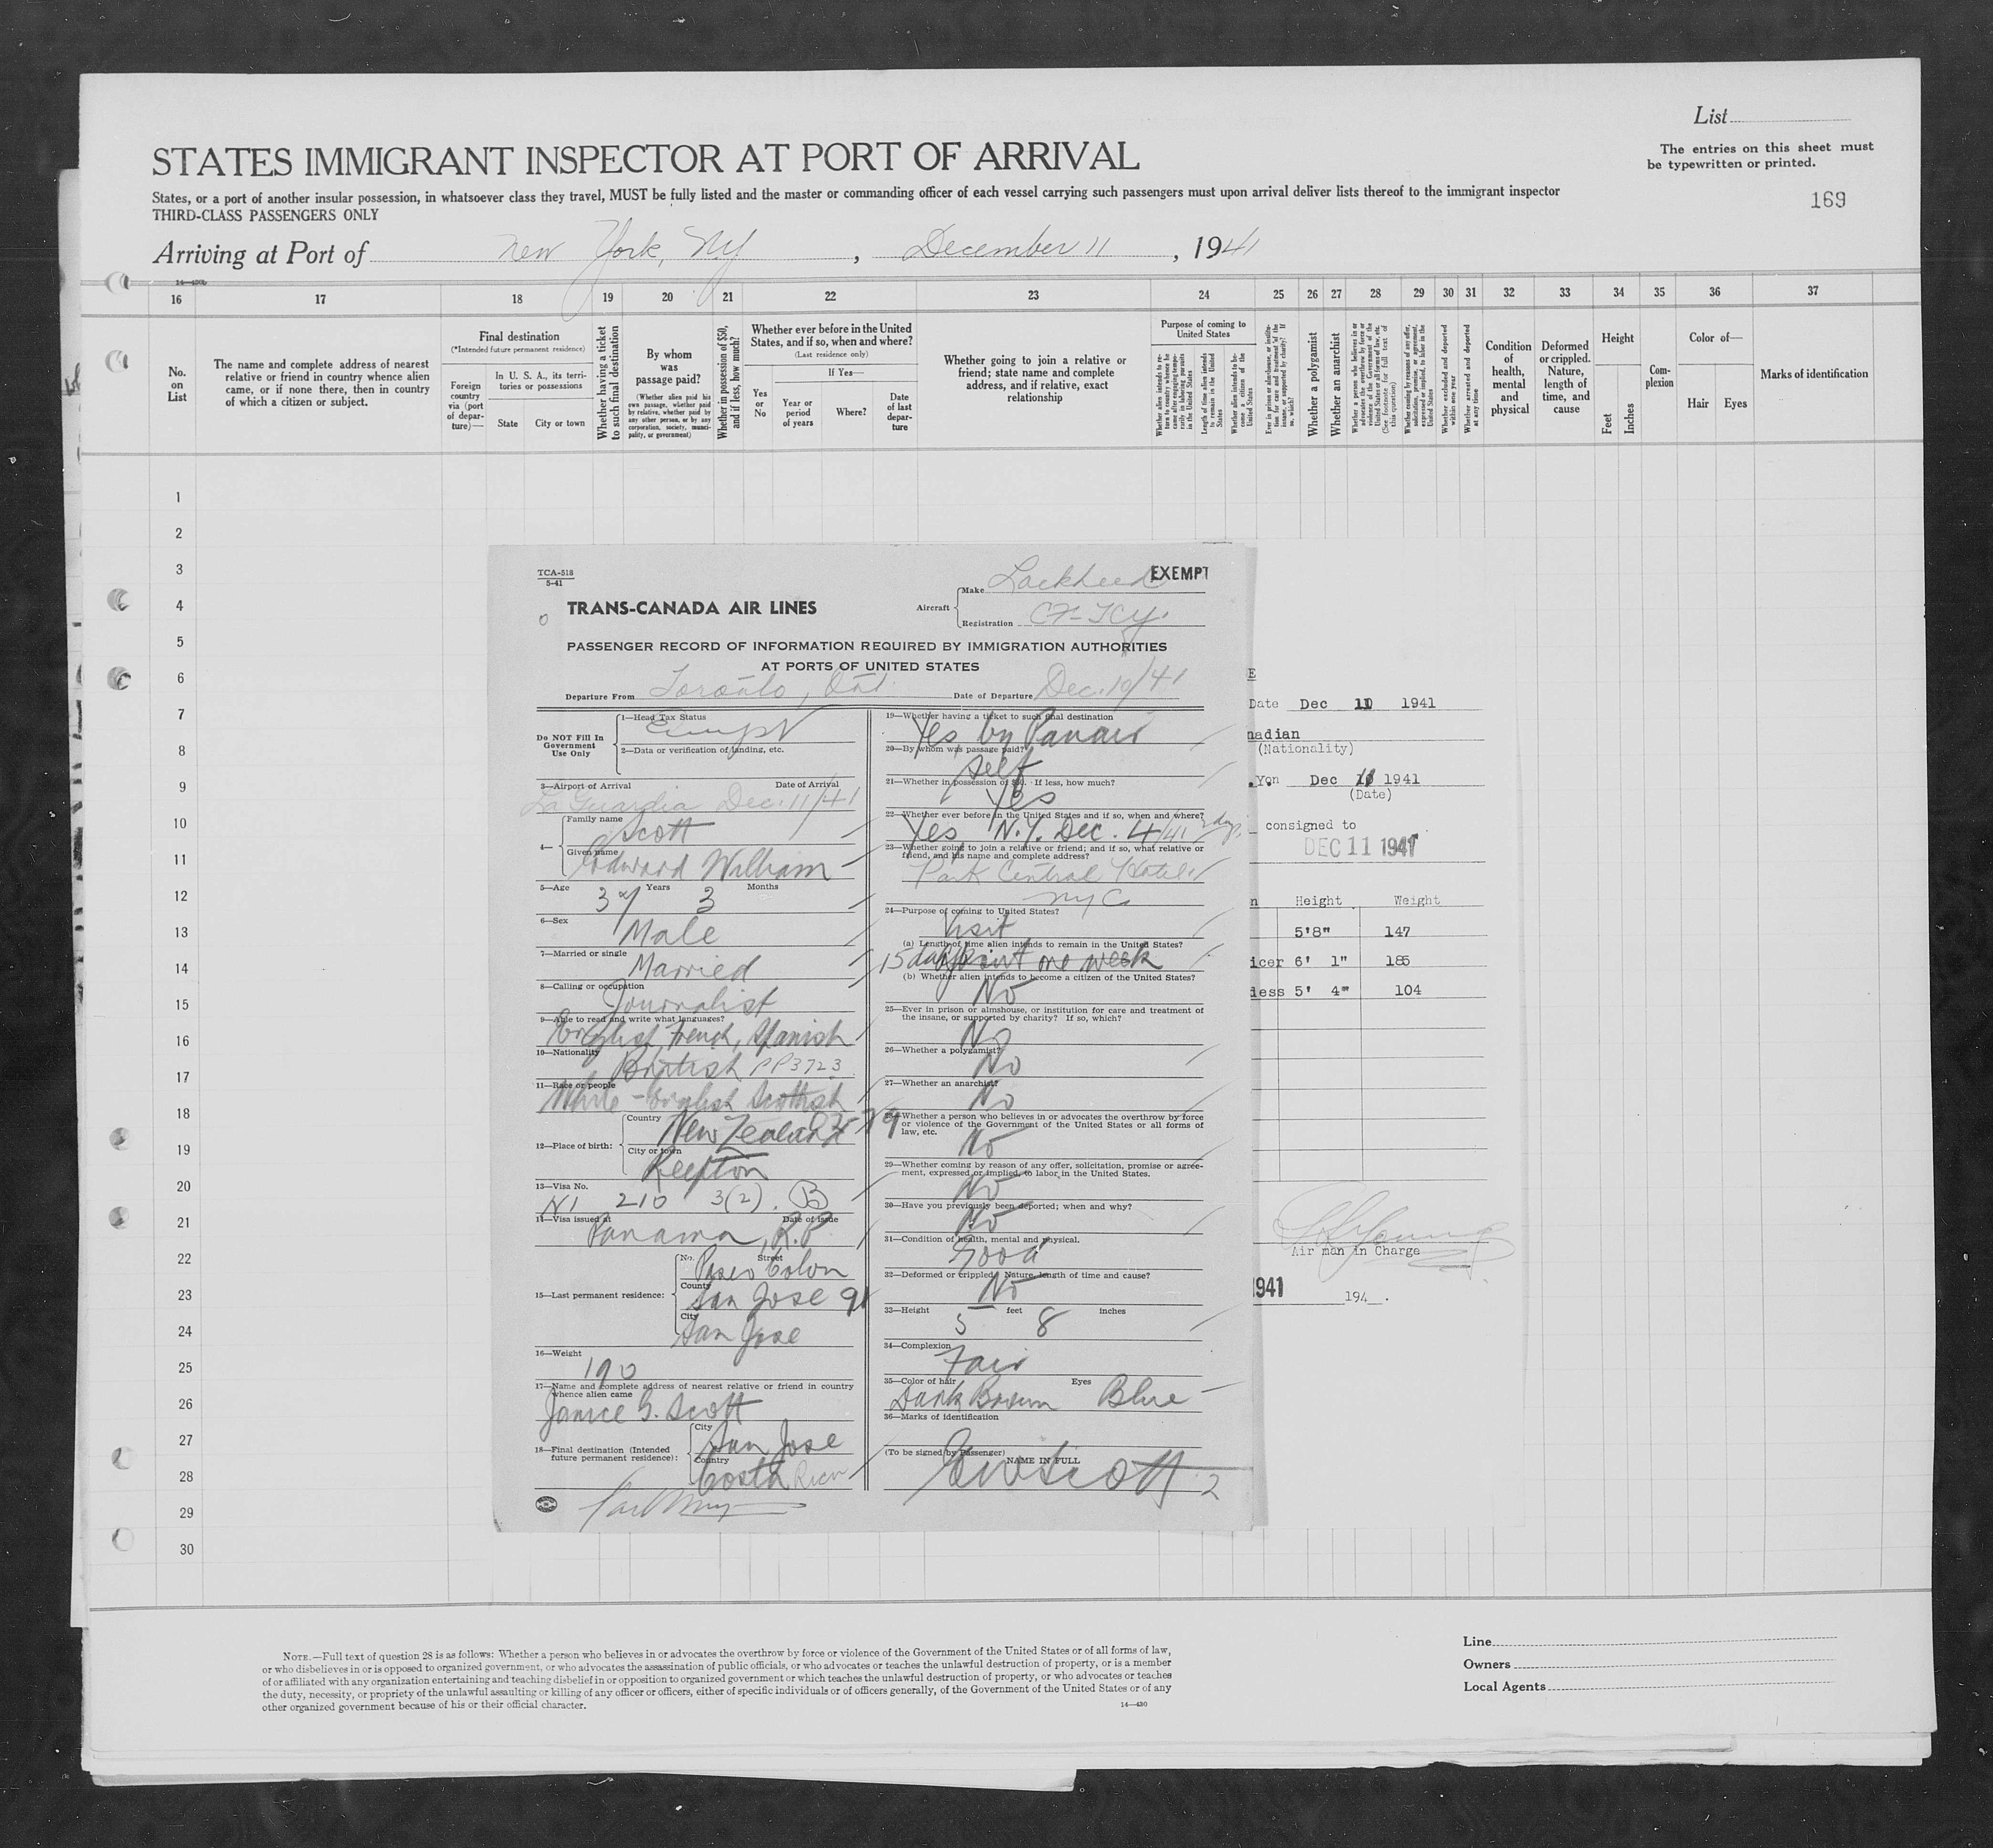 List
STATES IMMIGRANT INSPECTOR AT PORT OF ARRIVAL
The entries on this sheet must
be typewritten or printed.
States, or a port of another insular possession, in whatsoever class they travel, MUST be fully listed and the master or commanding officer of each vessel carrying such passengers must upon arrival deliver lists thereof to the immigrant inspector
THIRD-CLASS PASSENGERS ONLY
169
Arriving at Port of New York, NY, December 11, 1941
16 17 18 19 20 21 22 23 24 25 26 27 28 29 30 31 32 33 34 35 36 37
No.
on
List
The name and complete address of nearest
relative or friend in country whence alien
came, or if none there, then in country
of which a citizen or subject.
Final destination
(*Intended future permanent residence)
Foreign
country
via (port
of depar-
ture)—
In U. S. A., its terri-
tories or possessions
State
City or town
Whether having a ticket
to such final destination
By whom
was
passage paid?
(Whether alien paid his
own passage, whether paid
by relative, whether paid by
any other person, or by any
corporation, society, munici-
pality, or government)
Whether in possession of $50,
and if less, how much?
Whether ever before in the United
States, and if so, when and where?
(Last residence only)
Yes
or
No
If Yes—
Year or
period
of years
Where?
Date
of last
depar-
ture
Whether going to join a relative or
friend; state name and complete
address, and if relative, exact
relationship
Purpose of coming to
United States
Whether alien intends to re-
turn to country whence he
came after engaging tempo-
rarily in laboring pursuits
in the United States
Length of time alien intends
to remain in the United
States
Whether alien intends to be-
come a citizen of the
United States
Whether a polygamist
Whether an anarchist
Whether excluded and deported
within one year
Whether arrested and deported
at any time
Condition
of
health,
mental
and
physical
Deformed
or crippled.
Nature,
length of
time, and
cause
Height
Feet
Inches
Com-
plexion
Color of—
Hair
Eyes
Marks of identification
1
2
3
4
5
6
7
8
9
10
11
12
13
14
15
16
17
18
19
20
21
22
23
24
25
26
27
28
29
30
TCA-518
5-41
EXEMPT
TRANS-CANADA AIR LINES
Aircraft
Make Lockheed
Registration CF-TCY
PASSENGER RECORD OF INFORMATION REQUIRED BY IMMIGRATION AUTHORITIES
AT PORTS OF UNITED STATES
Departure From Toronto, Ont. Date of Departure Dec. 10/41
Do NOT Fill In
Government
Use Only
1—Head Tax Status
Exempt
2—Data or verification of landing, etc.
3—Airport of Arrival Date of Arrival
La Guardia Dec. 11/41
4—
Family name
Scott
Given name
Edward William
5—Age 37 Years 3 Months
6—Sex
Male
7—Married or single
Married
8—Calling or occupation
Journalist
9—Able to read and write what languages?
English, French, Spanish
10—Nationality
British PP3723
11—Race or people
White - English Scottish
12—Place of birth:
Country
New Zealand
City or town
Reefton
13—Visa No.
NI 210 3(2). B
14—Visa issued at Date of Issue
Panama, R.P.
15—Last permanent residence:
No. Street
Paseo Colon
County
San Jose
City
San Jose
16—Weight
190
17—Name and complete address of nearest relative or friend in country
whence alien came
Janice G. Scott
18—Final destination (Intended
future permanent residence):
City
San Jose
Country
Costa Rica
19—Whether having a ticket to such final destination
Yes by Panair
20—By whom was passage paid?
Self
21—Whether in possession of $50. If less, how much?
Yes
22—Whether ever before in the United States and if so, when and where?
Yes N.Y. Dec. 4/41 2 days
23—Whether going to join a relative or friend; and if so, what relative or
friend, and his name and complete address?
Park Central Hotel
NYC
24—Purpose of coming to United States?
Visit
(a) Length of time alien intends to remain in the United States?
15 days about one week
(b) Whether alien intends to become a citizen of the United States?
No
25—Ever in prison or almshouse, or institution for care and treatment of
the insane, or supported by charity? If so, which?
No
26—Whether a polygamist?
No
27—Whether an anarchist?
No
28—Whether a person who believes in or advocates the overthrow by force
or violence of the Government of the United States or all forms of
law, etc.
No
29—Whether coming by reason of any offer, solicitation, promise or agree-
ment, expressed or implied, to labor in the United States.
No
30—Have you previously been deported; when and why?
No
31—Condition of health, mental and physical.
Good
32—Deformed or crippled. Nature, length of time and cause?
No
33—Height 5 feet 8 inches
34—Complexion
Fair
35—Color of hair Eyes
Dark Brown Blue
36—Marks of identification
(To be signed by Passenger)
NAME IN FULL
EWScott 2
E
Date Dec 11 1941
nadian
(Nationality)
.Y. on Dec 11 1941
(Date)
consigned to
DEC 11 1941
n Height Weight
5'8" 147
icer 6' 1" 185
dess 5' 4" 104
Air man in Charge
1941
194 .
NOTE.—Full text of question 28 is as follows: Whether a person who believes in or advocates the overthrow by force or violence of the Government of the United States or of all forms of law,
or who disbelieves in or is opposed to organized government, or who advocates the assassination of public officials, or who advocates or teaches the unlawful destruction of property, or is a member
of or affiliated with any organization entertaining and teaching disbelief in or opposition to organized government or which teaches the unlawful destruction of property, or who advocates or teaches
the duty, necessity, or propriety of the unlawful assaulting or killing of any officer or officers, either of specific individuals or of officers generally, of the Government of the United States or of any
other organized government because of his or their official character.
14—430
Line
Owners
Local Agents